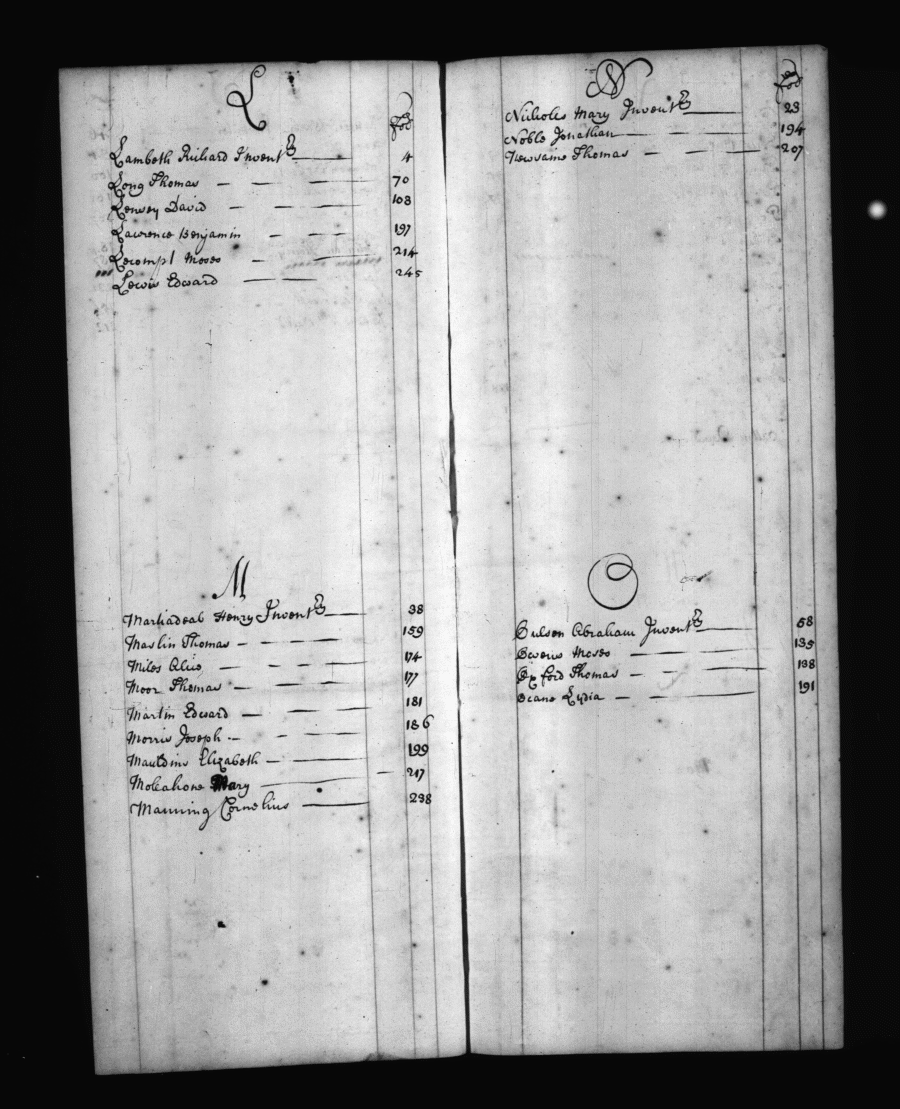 L
fol
Lambeth Richard Invent.ry 4
Long Thomas 70
Lenvey David 103
Lawrence Benjamin 197
Lecompt Moses 214
Lewis Edward 245
M
Marliadeal Henry Invent.ry 38
Maslin Thomas 159
Miles Alice 174
Moor Thomas 177
Martin Edward 181
Morris Joseph 186
Mauldins Elizabeth 199
Moleahone Mary 217
Manning Cornelius 238
N
fol
Nicholes Mary Invent.ry 23
Noble Jonathan 194
Newsame Thomas 207
O
Oulsen Abraham Invent.ry 58
Owens Moses 135
Oxford Thomas 138
Oeane Lydia 191